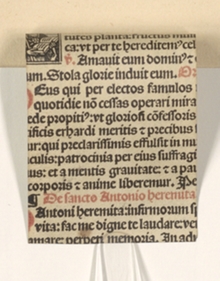 ruteo plantā: fructus
ca: vt per te hereditem⁹ cel
℣. Amauit eum domin⁹
um. Stola glorie induit eum. Or
Eus qui per electos famulos
quotidie nō cessas operari mira
ede propiti⁹: vt gloriosi cōfessoris
ificis erhardi meritis ⁊ precibus
ur: qui preclarissimis effulsit in mu
culis: patrocinia per eius suffragi
us: et a mentis grauitate: ⁊ a pa
corporis ⁊ anime liberemur. Pe
¶ De sancto Antonio heremita
Antoni heremita: infirmorum sp
vita: fac me digne te laudare: ver
amare: perpeti memoria. In adu